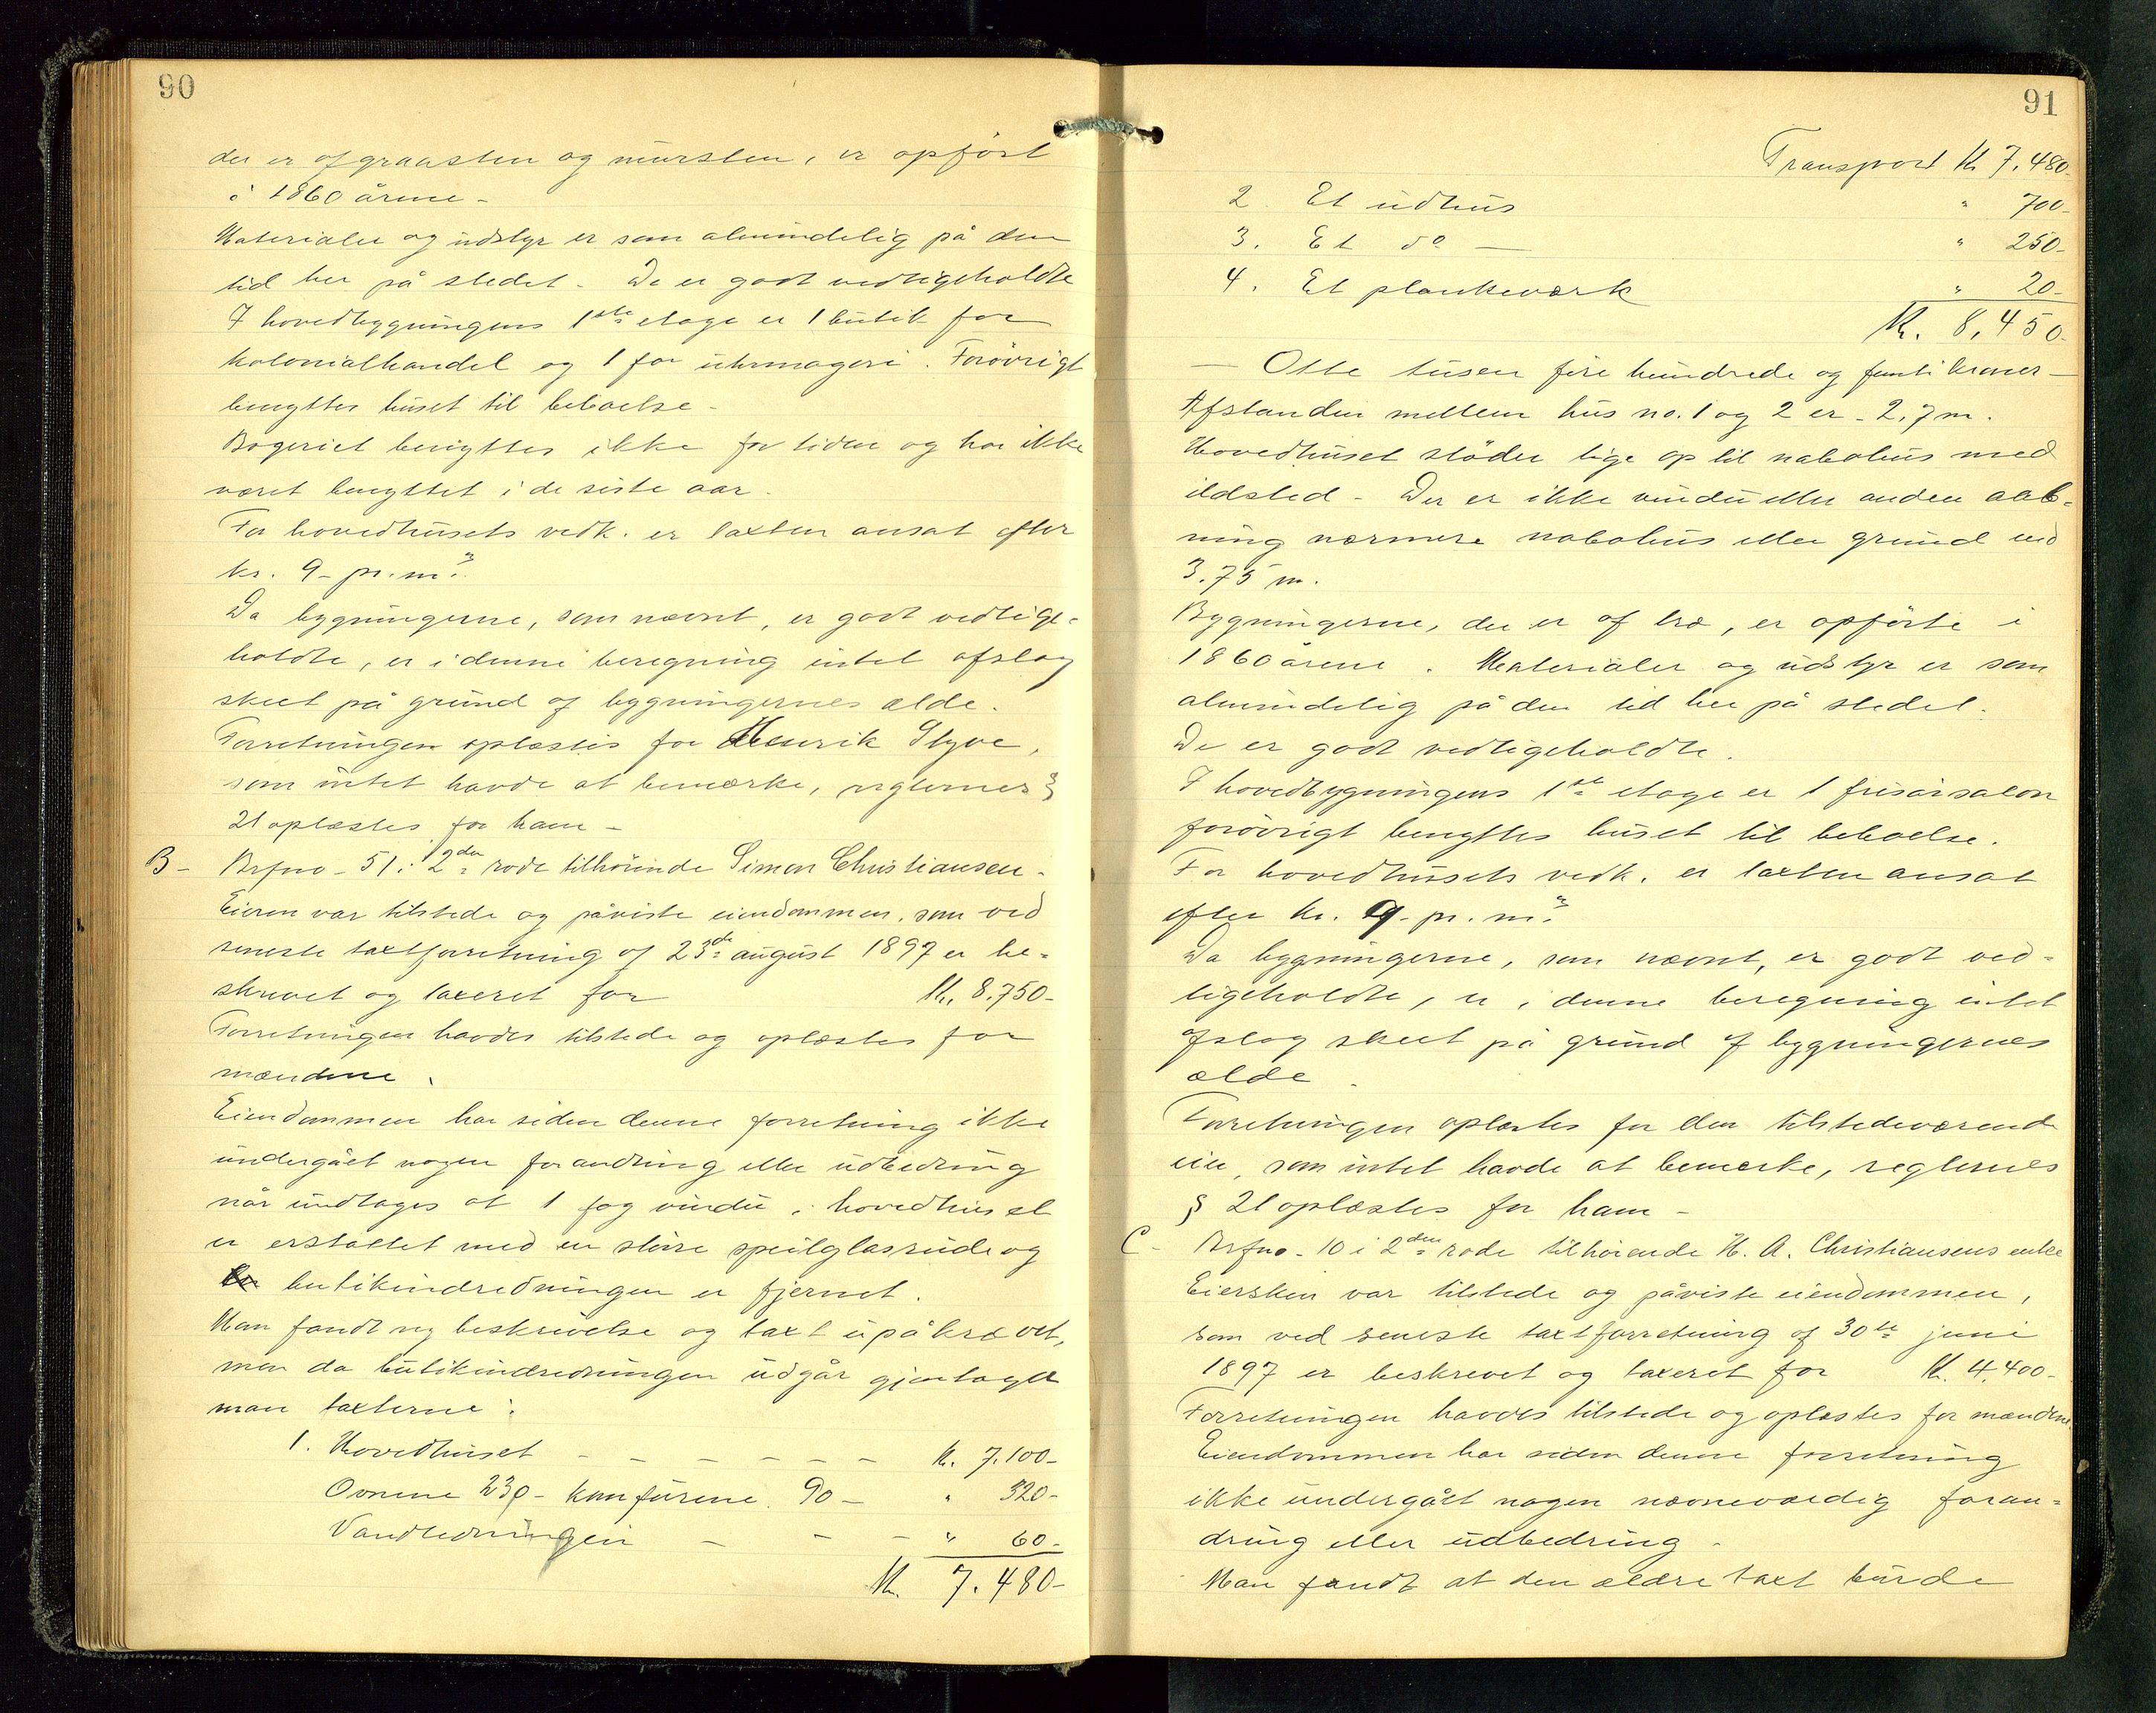 90
der er af graasten og mursten, er opført
i 1860 årene -
Materialer og udstyr er som almindelig på den
tid her på stedet - De er godt vedligeholdte
I hovedbygningens 1ste etage er 1 butik for
kolonialhandel og 1 for uhrmageri. Forøvrigt
benyttes huset til beboelse -
Bageriet benyttes ikke for tiden og har ikke
været benyttet i de siste aar -
For hovedhusets vedk. er taxten ansat efter
kr. 9 - pr. m³.
Da bygningerne, som nævnt, er godt vedlige-
holdte, er i denne beregning intet afslag
skeet på grund af bygningernes ælde.
Forretningen oplæstes for Henrik Styve,
som intet havde at bemærke, reglernes §
21 oplæstes for ham -
B - Brfno - 51 i 2den rode tilhørende Simon Christiansen -
Eieren var tilstede og påviste eiendommen, som ved
seneste taxtforretning af 23de august 1897 er be-
skrevet og taxeret for Kr. 8.750 -
Forretningen havdes tilstede og oplæstes for
mændene.
Eiendommen har siden denne forretning ikke
undergået nogen forandring eller udbedring
når undtages at 1 fag vindu i hovedhuset
er erstattet med en større speilglasrude og
butikindredningen er fjernet.
Man fandt ny beskrivelse og taxt upåkrævet,
men da butikindredningen udgår gjentages
man taxterne:
1. Hovedhuset - - - - - - kr. 7.100 -
Ovnene 230 - komfurene 90 - " 320 -
Vandledningen - - - " 60 -
Kr. 7.480 -
91
Transport Kr 7.480 -
2. Et udhus " 700 -
3. Et do — " 250 -
4. Et plankeværk " 20 -
Kr. 8.450 -
— Otte tusen fire hundrede og femti kroner —
Afstanden mellem hus no. 1 og 2 er - 2,7 m.
Hovedhuset støder lige op til nabohus med
ildsted - Der er ikke vindu eller anden aab-
ning nærmere nabohus eller grund end
3.75 m.
Bygningerne, der er af træ, er opførte i
1860 årene. Materialer og udstyr er som
almindelig på den tid her på stedet.
De er godt vedligeholdte.
I hovedbygningens 1ste etage er 1 frisørsalon
forøvrigt benyttes huset til beboelse.
For hovedhusets vedk. er taxten ansat
efter kr. 9 - pr. m³.
Da bygningerne, som nævnt, er godt ved-
ligeholdte, er i denne beregning intet
afslag skeet på grund af bygningernes
ælde.
Forretningen oplæstes for den tilstedeværende
eier, som intet havde at bemærke, reglernes
§ 21 oplæstes for ham -
C - Brfno - 10 i 2den rode tilhørende H. A. Christiansens enke
Eiersken var tilstede og påviste eiendommen,
som ved seneste taxtforretning af 30te juni
1897 er beskrevet og taxeret for Kr. 4.400 -
Forretningen havdes tilstede og oplæstes for mændene
Eiendommen har siden denne forretning
ikke undergået nogen nævneværdig foran-
dring eller udbedring -
Man fandt at den ældre taxt burde